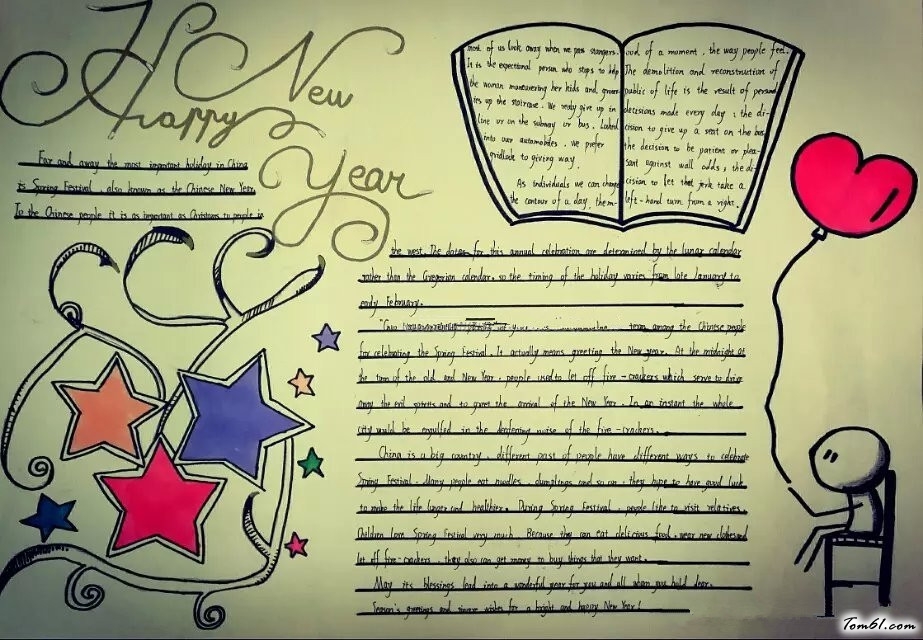 Happy New
Year
Far and away the most important holiday in China
is Spring Festival, also known as the Chinese New Year.
To the Chinese people it is as important as Christmas to people in
the west. The dates for this annual celebration are determined by the lunar calendar
rather than the Gregorian calendar, so the timing of the holiday varies from late January to
early February.
term among the Chinese people
for celebrating the Spring Festival. It actually means greeting the New year. At the midnight at
the turn of the old and New Year, people used to let off fire-crackers which serve to drive
away the evil spirits and to greet the arrival of the New Year. In an instant the whole
city would be engulfed in the deafening noise of the fire-crackers.
China is a big country. different past of people have different ways to celebrate
Spring Festival. Many people eat noodles, dumplings and so on. they hope to have good luck
to make the life longer and healthier. During Spring Festival, people like to visit relatives.
Children love Spring Festival very much. Because they can eat delicious food, wear new clothes and
let off fire-crackers. they also can get money to buy things that they want.
May its blessings lead into a wonderful year for you and all whom you hold dear.
Season's greetings and sincere wishes for a bright and happy New Year!
most of us look away when we pass strangers.
It is the expectional person who stops to help
the woman maneuvering her kids and groceries
up the staircase. We rarely give up in
line or on the subway or bus. Locked
into our automobiles, we prefer
gridlock to giving way.
As individuals we can change
the contour of a day, the m-
ood of a moment, the way people feel.
The demolition and reconstruction of
public of life is the result of personal
decisions made every day: the di-
cision to give up a seat on the bus,
the decision to be patient or plea-
sant against wall odds; the di-
cision to let that jerk take a
left-hand turn from a right.
Tom61.com